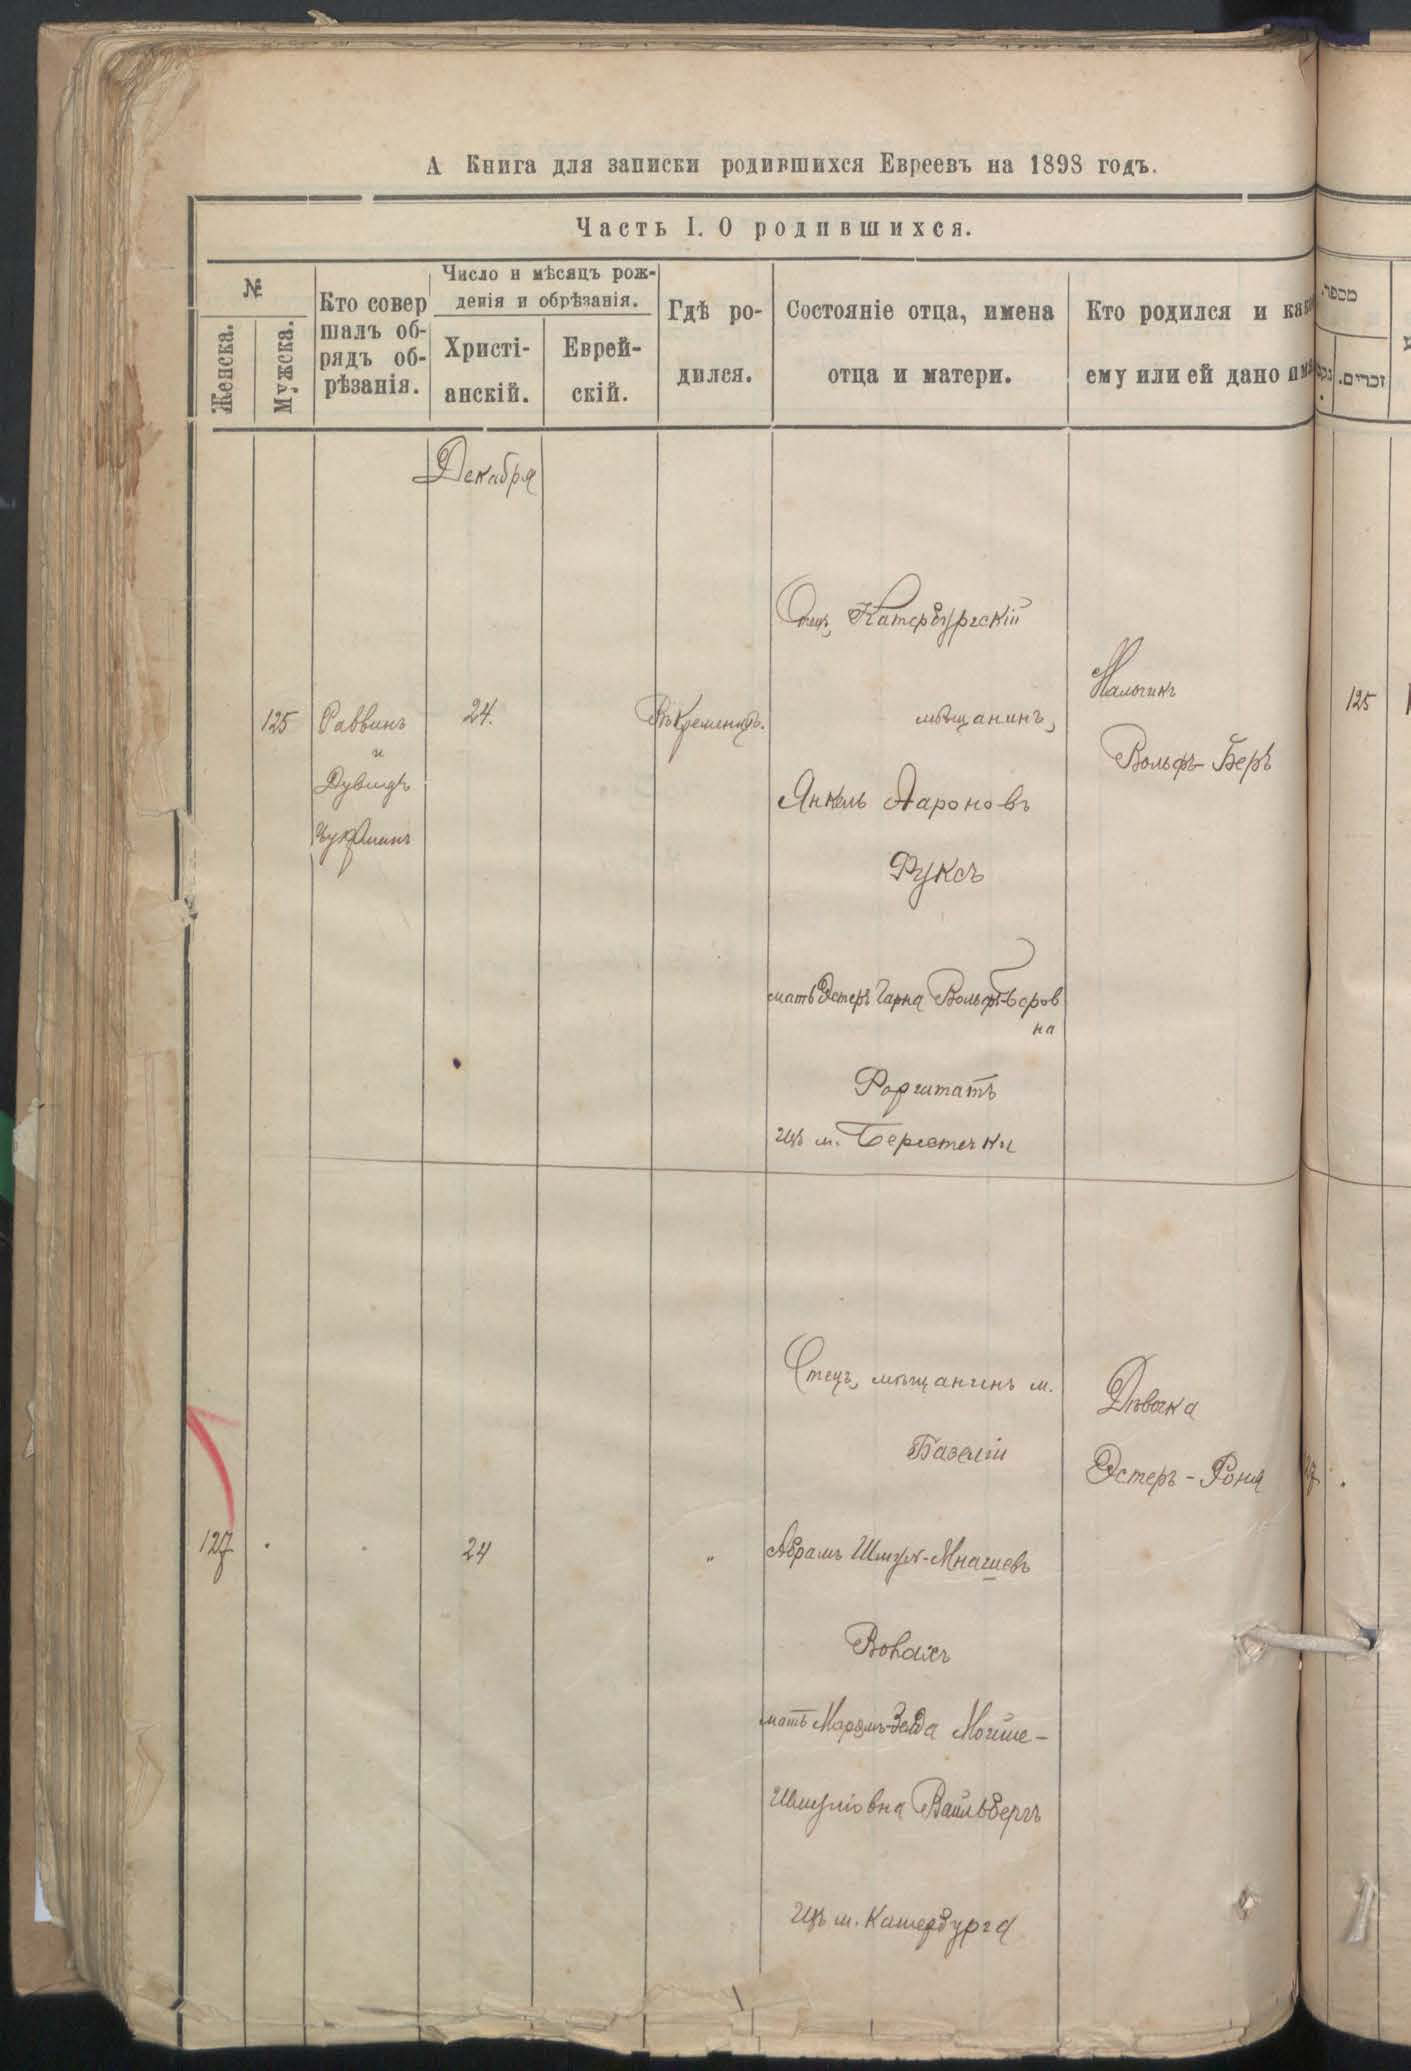 А Книга для записки родившихся Евреевъ на 1898 годъ.
Часть I. О родившихся.
№
Женска.
Мужска.
Кто совер
шалъ об-
рядъ об-
рѣзанія.
Число и мѣсяцъ рож-
денія и обрѣзанія.
Христі-
анскій.
Еврей-
скій.
Гдѣ ро-
дился.
Состояніе отца, имена
отца и матери.
Кто родился и как
ему или ей дано имя
מספר.
זכרים.
Декабря
125
Раввинъ
и
Дувидъ
24.
Въ Кременцѣ.
Отецъ, Катербургскій
мѣщанинъ,
Янкель Аароновъ
Фуксъ
мать Эстеръ Чарна Вольфъ-Беров
на
изъ м. Берестечки
Мальчикъ
Вольфъ-Беръ
125
127
24
"
Отецъ, мѣщанинъ м.
Базаліи
Абрамъ Шмуль-Мнашевъ
мать Маромъ-Зелда Мойше-
Шмулiовна Вайльбергъ
Изъ м. Катербурга
Дѣвочка
Эстеръ-Роня